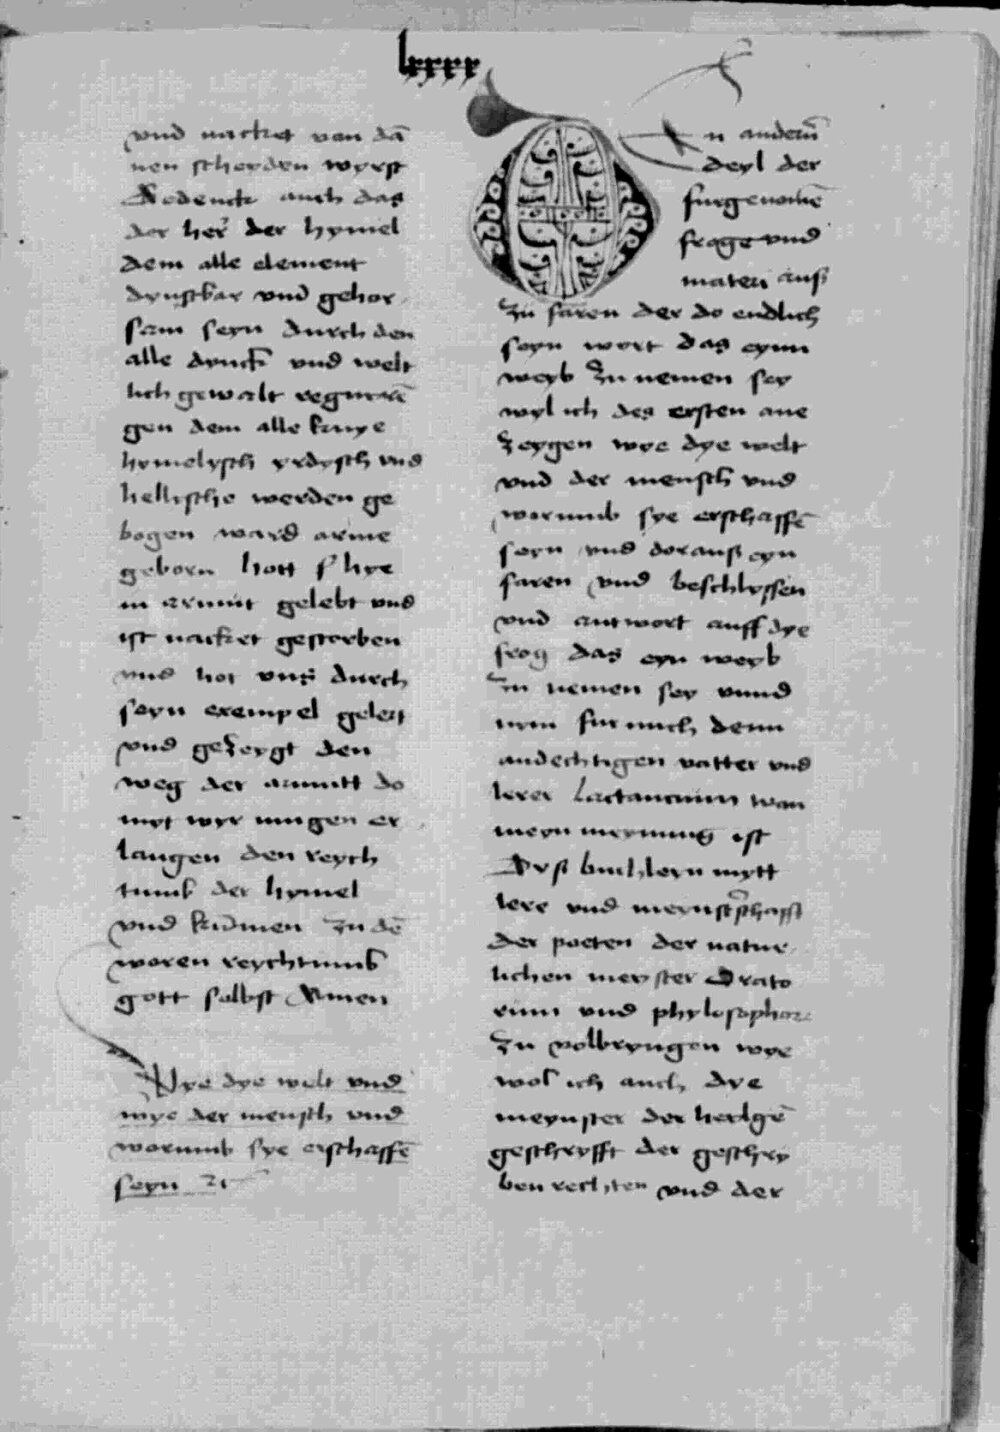 lxxx
vnd nacket von dā
nen scheyden wyrst
Gedenck auch das
der her̄ der hymel
dem alle element
dynstbar vnd gehor
sam seyn durch den
alle dynck vnd welt
lich gewalt regnirē
gen dem alle knye
hymelysch yrdysch vnd
hellische werden ge
bogen ward arme
geborn hott hye
in armut gelebt vnd
ist nacket gestorben
vnd hot vns durch
seyn exempel gelert
vnd gezeygt den
weg der armutt do
myt wyr mugen er
langen den reych
tumb der hymel
vnd kūmen zu dē
woren reychtumb
gott selbst Amen
Wye dye welt vnd
wye der mensch vnd
worumb sye erschaffē
seyn
n andern̄
deyl der
furgenomē
froge vnd
materi auß
zu faren der do endlich
seyn wort das eynn
weyb zu nemen sey
wyl ich des ersten ane
zeygen wye dye welt
vnd der mensch vnd
worumb sye erschaffē
seyn vnd dorauß eyn
faren vnd beschlyssen
vnd antwort auff dye
frog das eyn weyb
zu nemen sey vnnd
nym fur mich denn
andechtigen vatter vnd
lerer lactancium wan
meyn meynung ist
Dyß buchleyn mytt
lere vnd meynsterschafft
der poeten der natur
lichen meyster Orato
rum vnd phylosophor
zu volbryngen wye
wol ich auch dye
meynster der heylgē
geschryfft der geschry
ben rechten vnd der